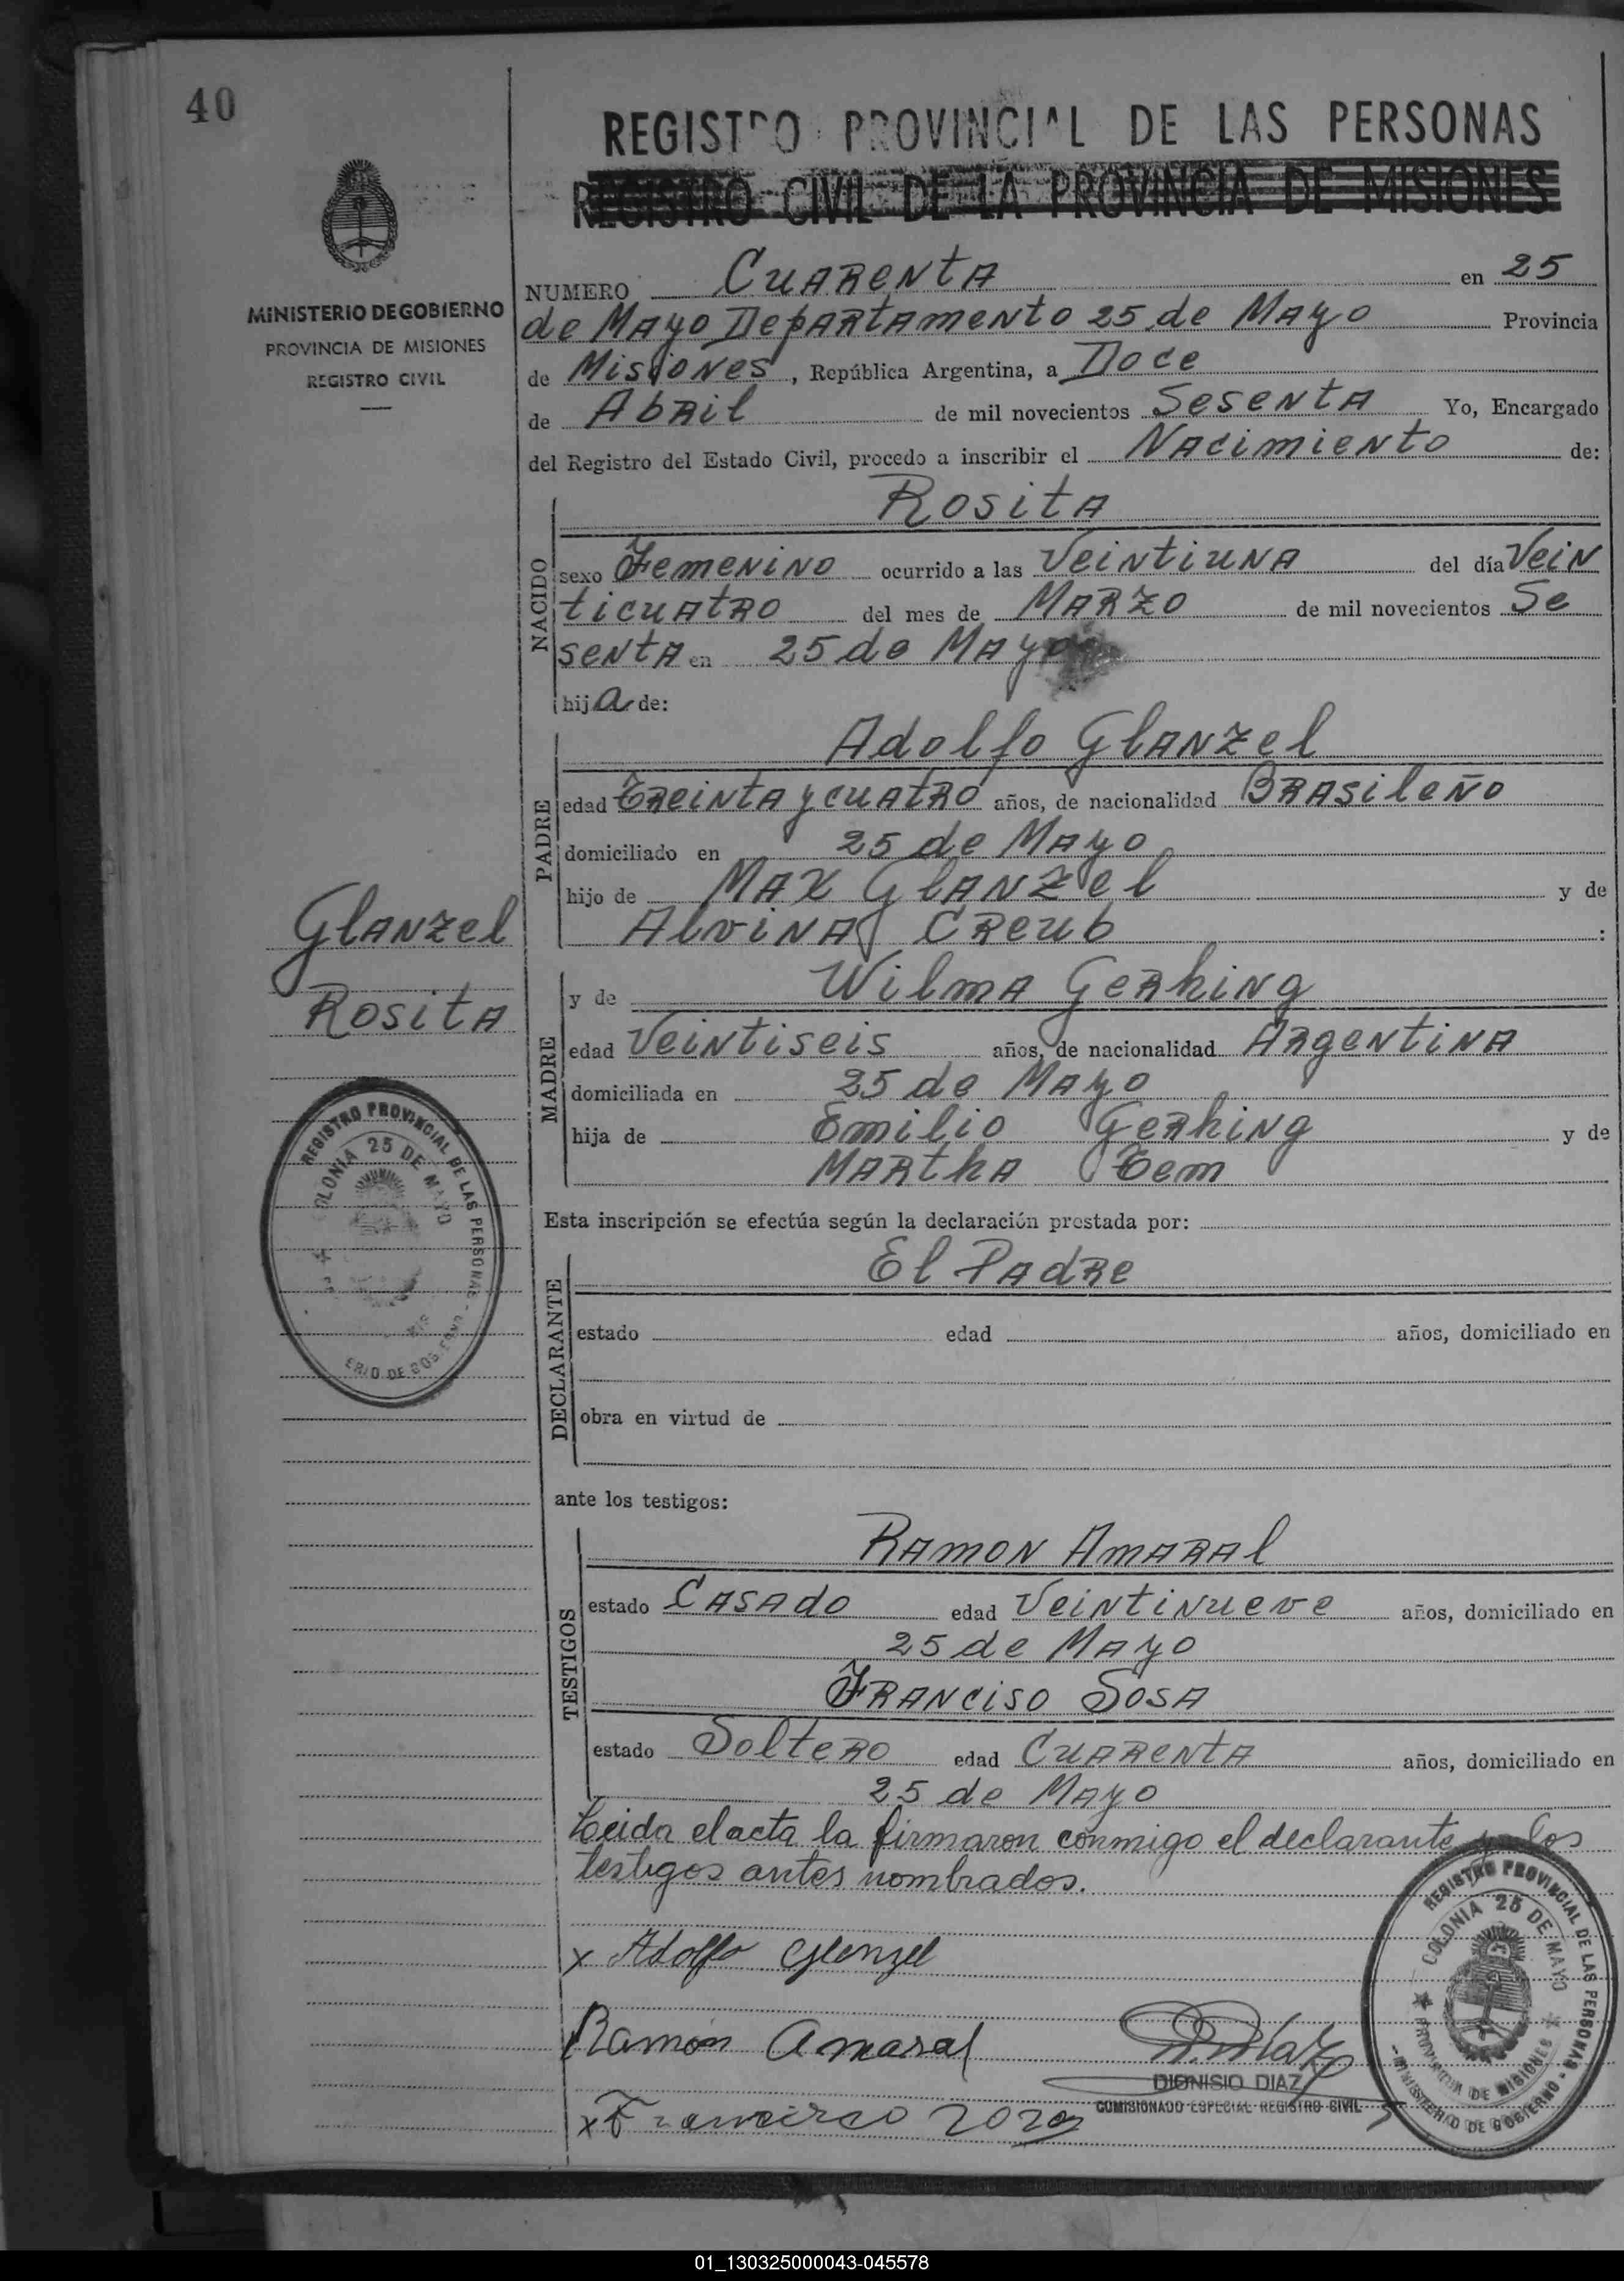 40
REGISTRO PROVINCIAL DE LAS PERSONAS
REGISTRO CIVIL DE LA PROVINCIA DE MISIONES
MINISTERIO DE GOBIERNO
PROVINCIA DE MISIONES
REGISTRO CIVIL
NUMERO Cuarenta en 25
de Mayo Departamento 25 de Mayo Provincia
de Misiones, República Argentina, a Doce
de Abril de mil novecientos Sesenta Yo, Encargado
del Registro del Estado Civil, procedo a inscribir el Nacimiento de:
Rosita
NACIDO
sexo Femenino ocurrido a las Veintiuna del día Vein
ticuatro del mes de Marzo de mil novecientos Se
senta en 25 de Mayo
hija de:
Adolfo Glanzel
PADRE
edad Treinta y cuatro años, de nacionalidad Brasileño
domiciliado en 25 de Mayo
hijo de Max Glanzel y de
Alvina Creub :
Glanzel
Rosita
y de Wilma Gerhing
MADRE
edad Veintiseis años, de nacionalidad Argentina
domiciliada en 25 de Mayo
hija de Emilio Gerhing y de
Martha Tem
REGISTRO PROVINCIAL DE LAS PERSONAS
COLONIA 25 DE MAYO
Esta inscripción se efectúa según la declaración prestada por:
El Padre
DECLARANTE
estado edad años, domiciliado en
obra en virtud de
ante los testigos:
Ramon Amaral
TESTIGOS
estado Casado edad Veintinueve años, domiciliado en
25 de Mayo
Franciso Sosa
estado Soltero edad Cuarenta años, domiciliado en
25 de Mayo
Leida el acta la firmaron conmigo el declarante y los
testigos antes nombrados.
x Adolfo Glenzel
Ramón Amaral
DIONISIO DIAZ
COMISIONADO ESPECIAL REGISTRO CIVIL
x Francisco
REGISTRO PROVINCIAL DE LAS PERSONAS
- MINISTERIO DE GOBIERNO -
COLONIA 25 DE MAYO
PROVINCIA DE MISIONES
01_130325000043-045578